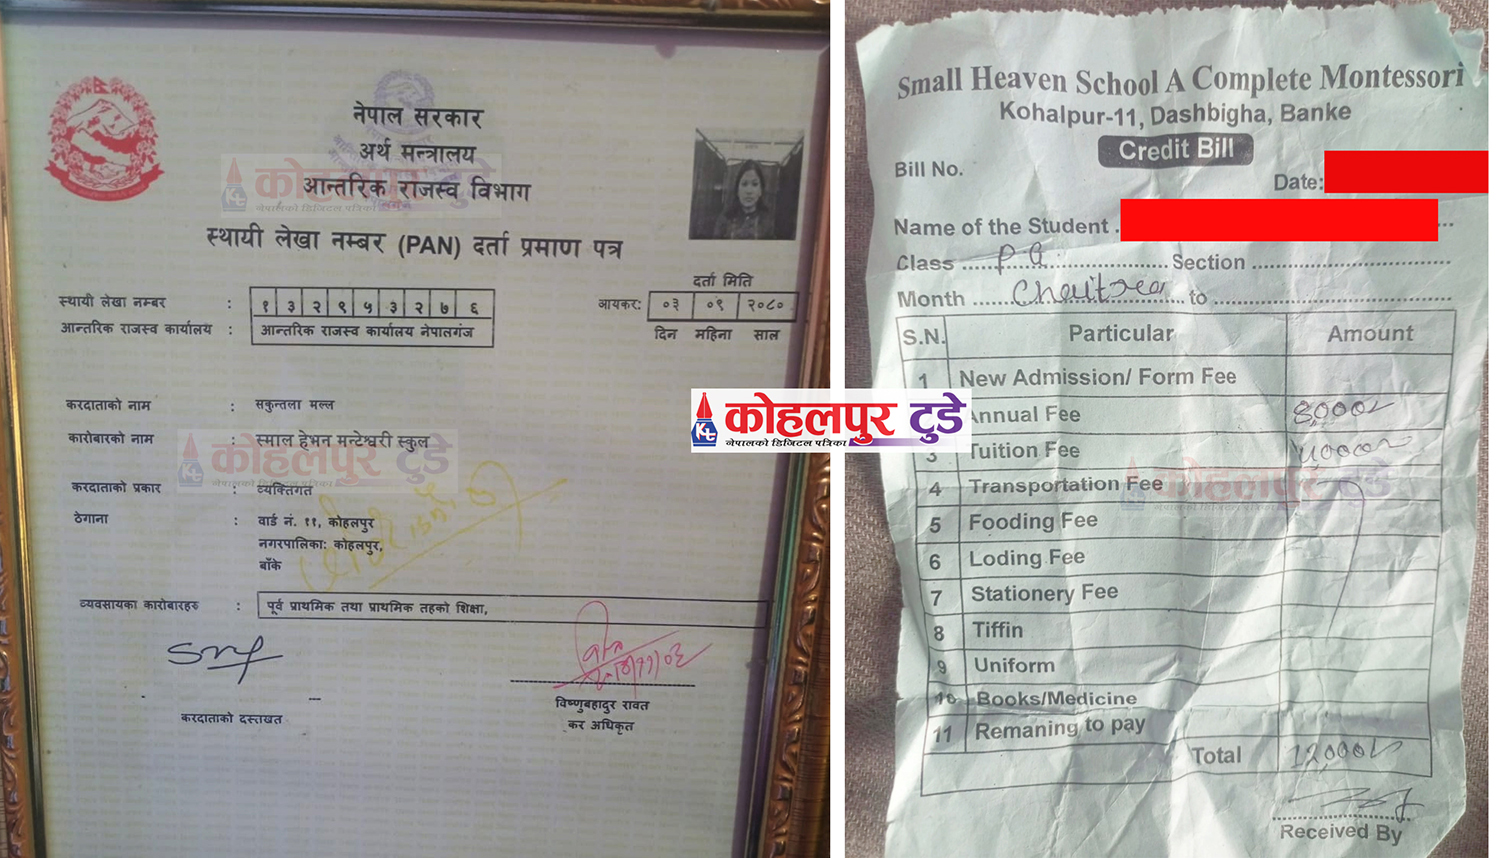 नेपाल सरकार
अर्थ मन्त्रालय
आन्तरिक राजस्व विभाग
स्थायी लेखा नम्बर (PAN) दर्ता प्रमाण पत्र
दर्ता मिति
स्थायी लेखा नम्बर : १ ३ २ ९ ५ ३ २ ७ ६
आयकर: ०३ ०९ २०८०
दिन महिना साल
आन्तरिक राजस्व कार्यालय : आन्तरिक राजस्व कार्यालय नेपालगंज
करदाताको नाम : सकुन्तला मल्ल
कारोबारको नाम : स्माल हेभन मन्टेश्वरी स्कुल
करदाताको प्रकार : व्यक्तिगत
ठेगाना : वार्ड नं. ११, कोहलपुर
नगरपालिका: कोहलपुर,
बाँके
व्यवसायका कारोबारहरु : पूर्व प्राथमिक तथा प्राथमिक तहको शिक्षा,
करदाताको दस्तखत
विष्णुबहादुर रावत
कर अधिकृत
कोहलपुर टुडे
नेपालको डिजिटल पत्रिका
कोहलपुर टुडे
नेपालको डिजिटल पत्रिका
कोहलपुर टुडे
नेपालको डिजिटल पत्रिका
Small Heaven School A Complete Montessori
Kohalpur-11, Dashbigha, Banke
Credit Bill
Bill No.
Date:
Name of the Student
Class P.G. Section
Month Chaitra to
S.N. Particular Amount
1 New Admission/ Form Fee
Annual Fee 8000/-
3 Tuition Fee 4000/-
4 Transportation Fee
5 Fooding Fee
6 Loding Fee
7 Stationery Fee
8 Tiffin
9 Uniform
10 Books/Medicine
11 Remaning to pay
Total 12,000/-
Received By
कोहलपुर टुडे
नेपालको डिजिटल पत्रिका